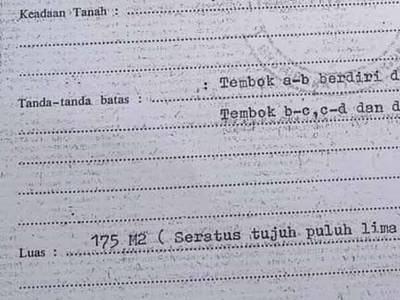 Keadaan Tanah :
: Tembok a-b berdiri d
Tanda-tanda batas :
Tembok b-c,c-d dan d
Luas : 175 M2 ( Seratus tujuh puluh lima